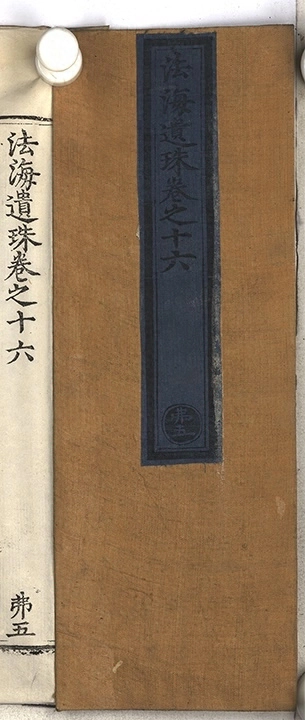 法海遺珠卷之十六
弗五
法海遺珠卷之十六
弗五